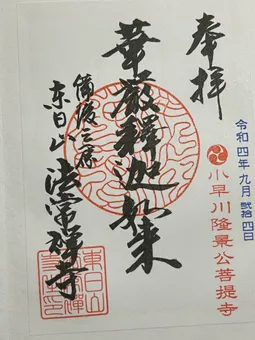 奉拝
令和四年九月弐拾四日
小早川隆景公菩提寺
華厳釋迦如来
備後三原
東日山法常禅寺